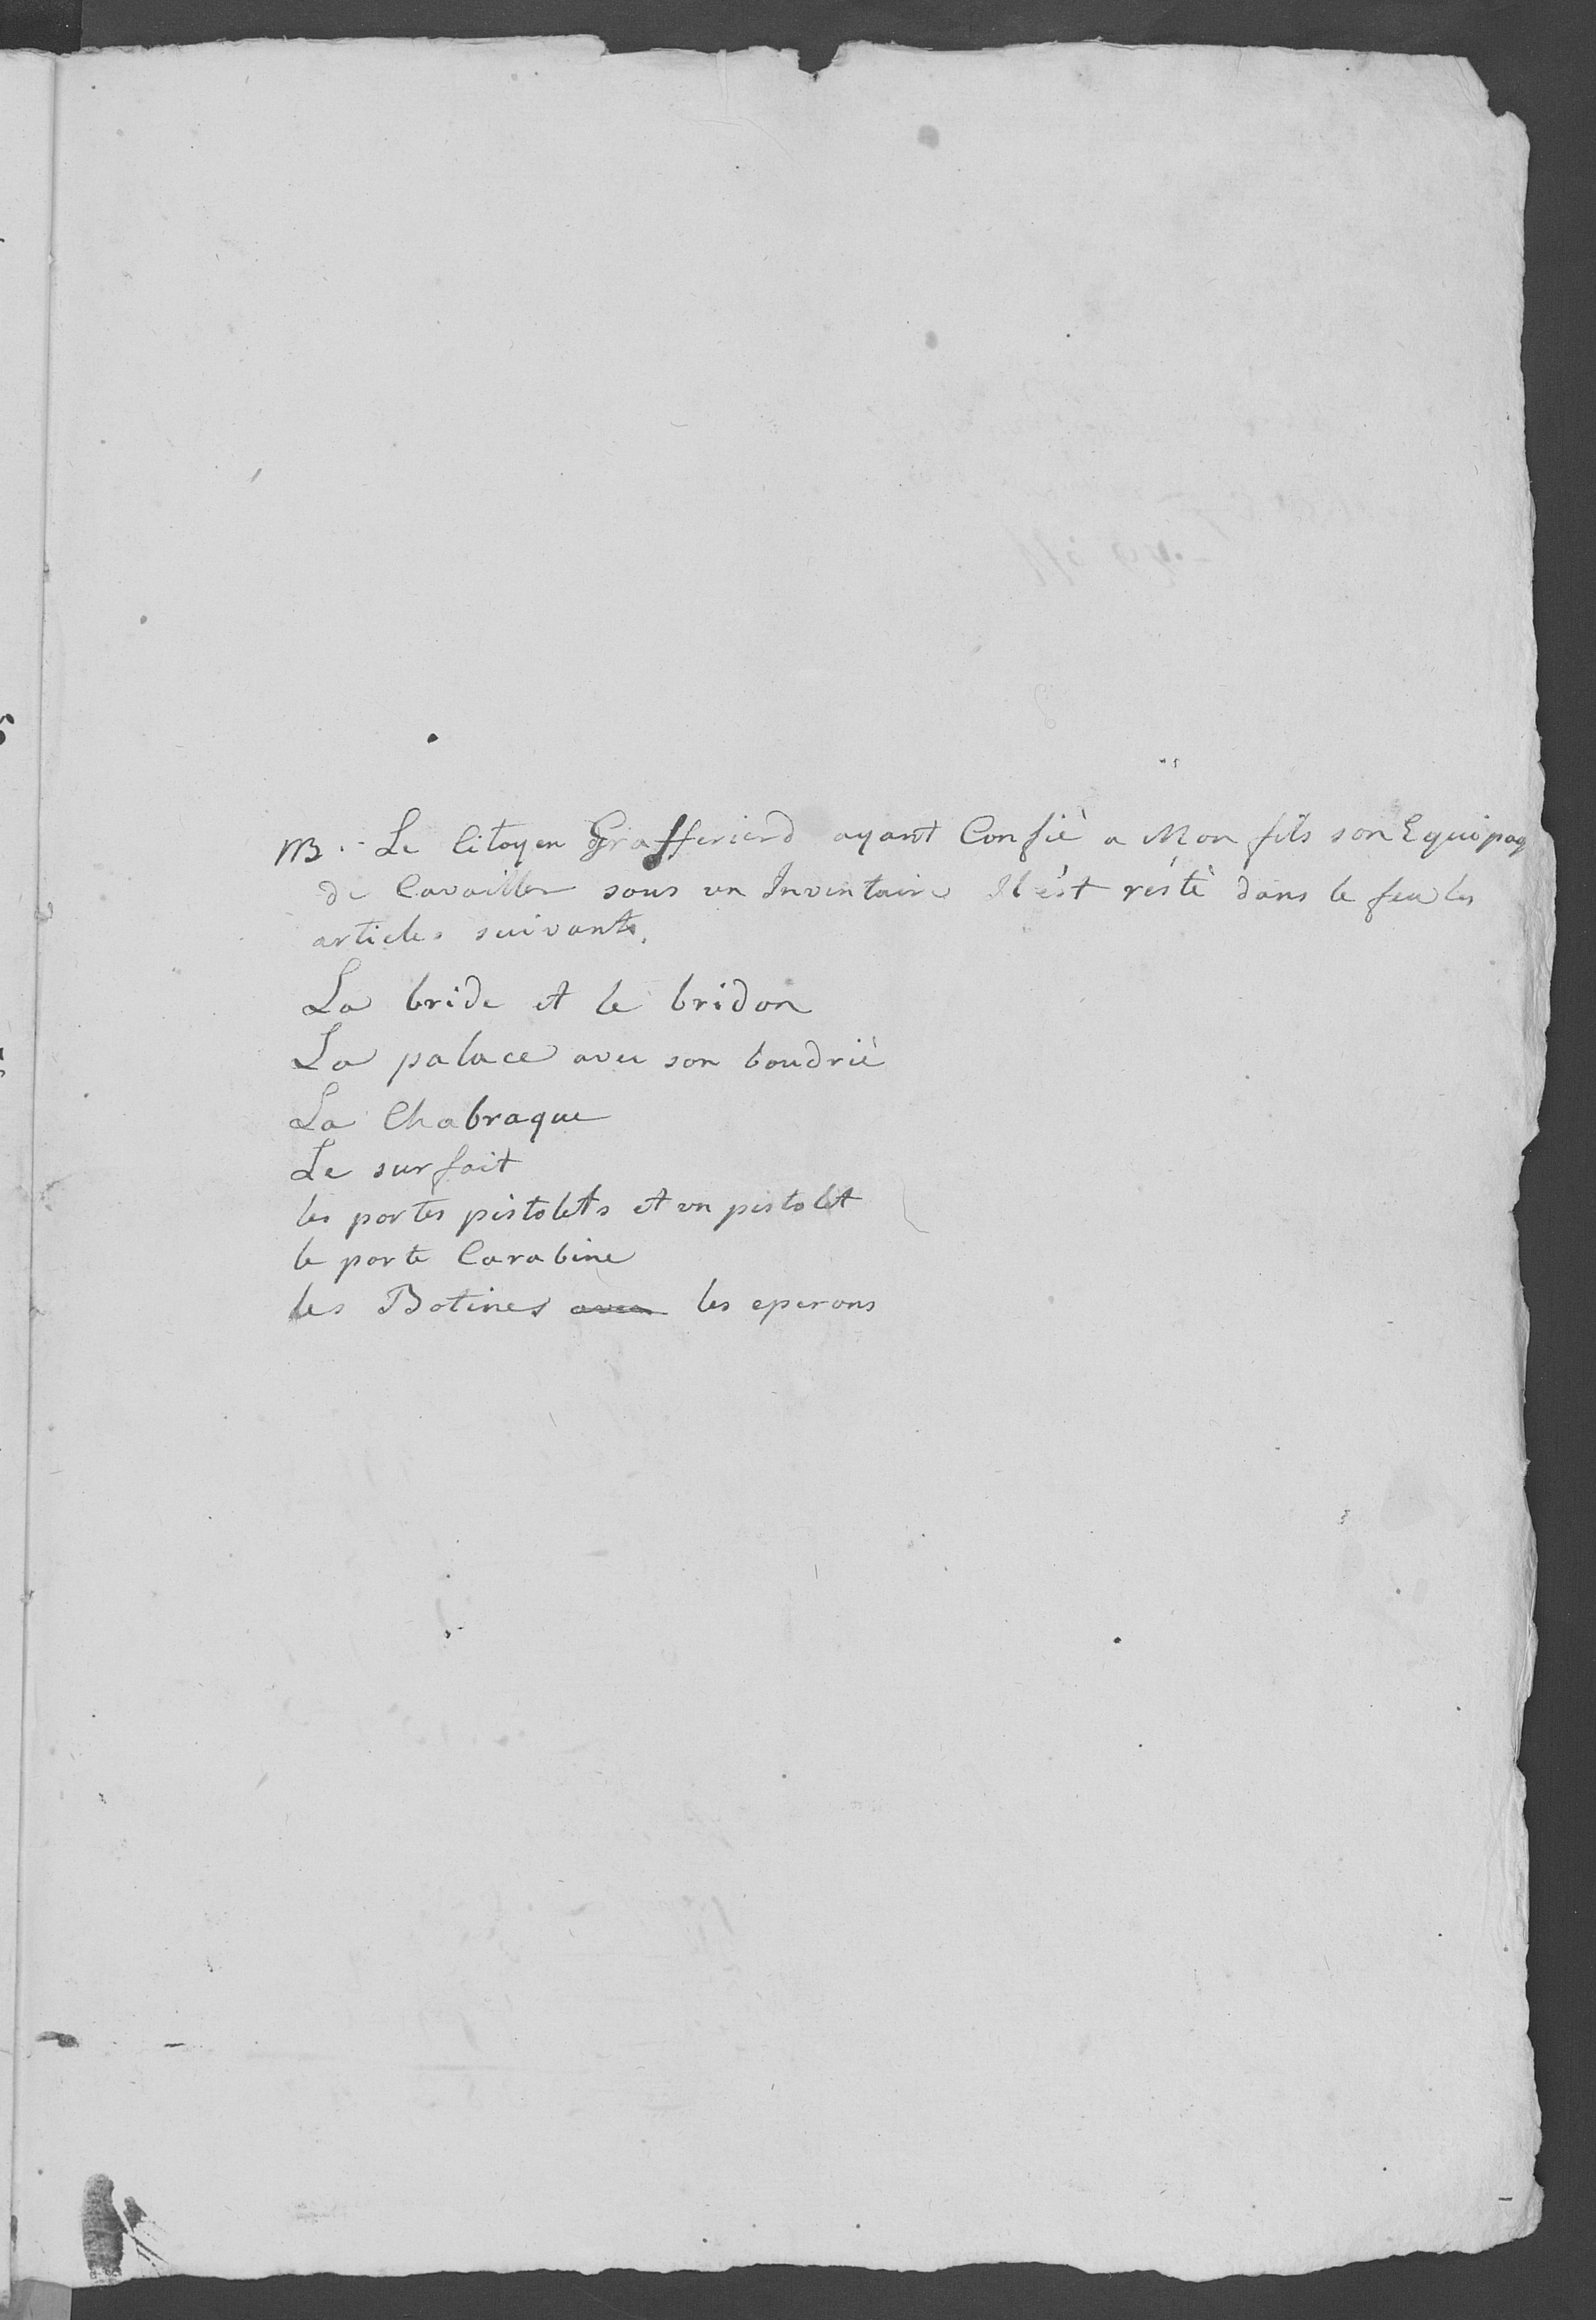 NB. Le Citoyen Grafferierd ayant Confié a Mon fils son Equipag
de Cavailler sous un Inventaire Il ést résté dans le feu les
articles suivants.
La bride et le bridon
La palace avec son boudrié
La Chabraque
Le surfait
les portes pistolets et un pistolet
le porte Carabine
les Botines avec les eperons